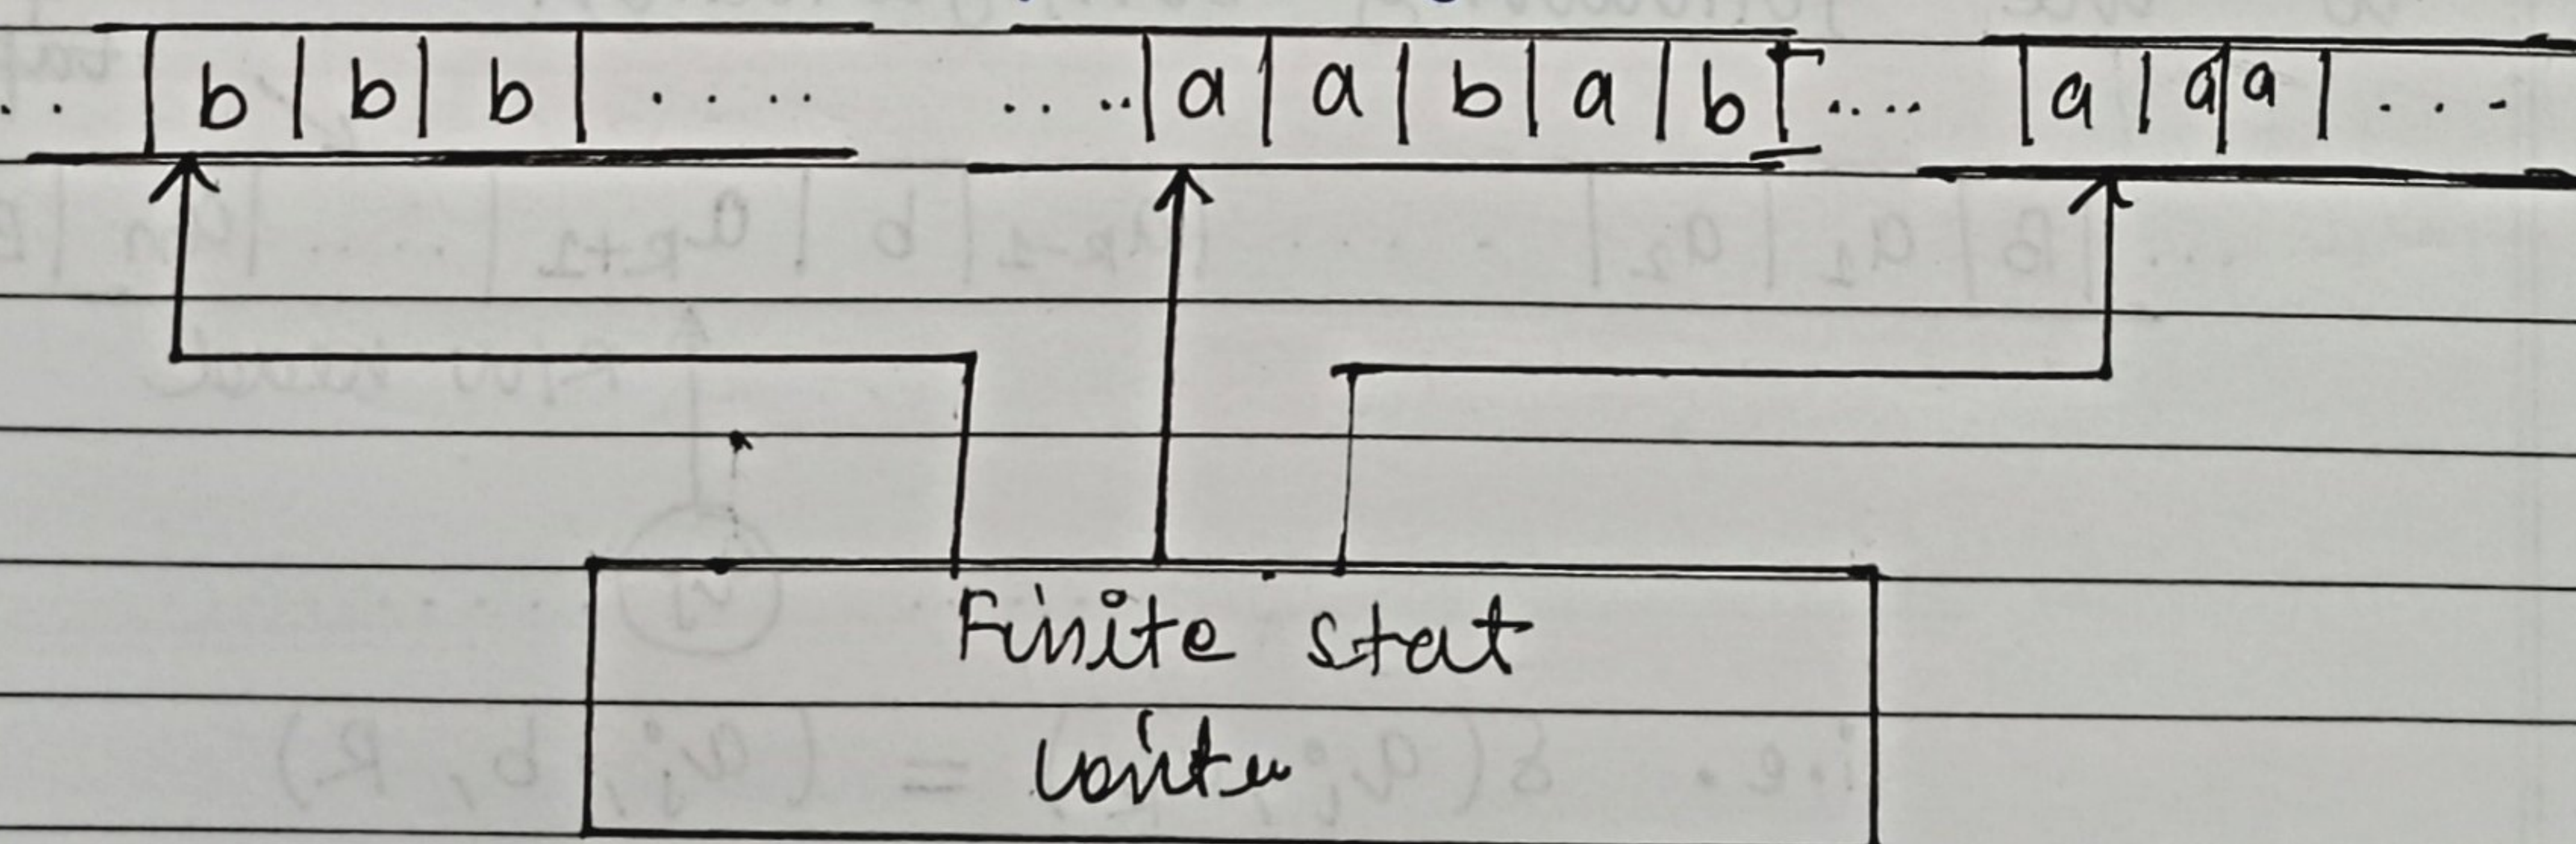 .. | b | b | b | .... .... | a | a | b | a | b | .... | a | a | a | ...
Finite stat